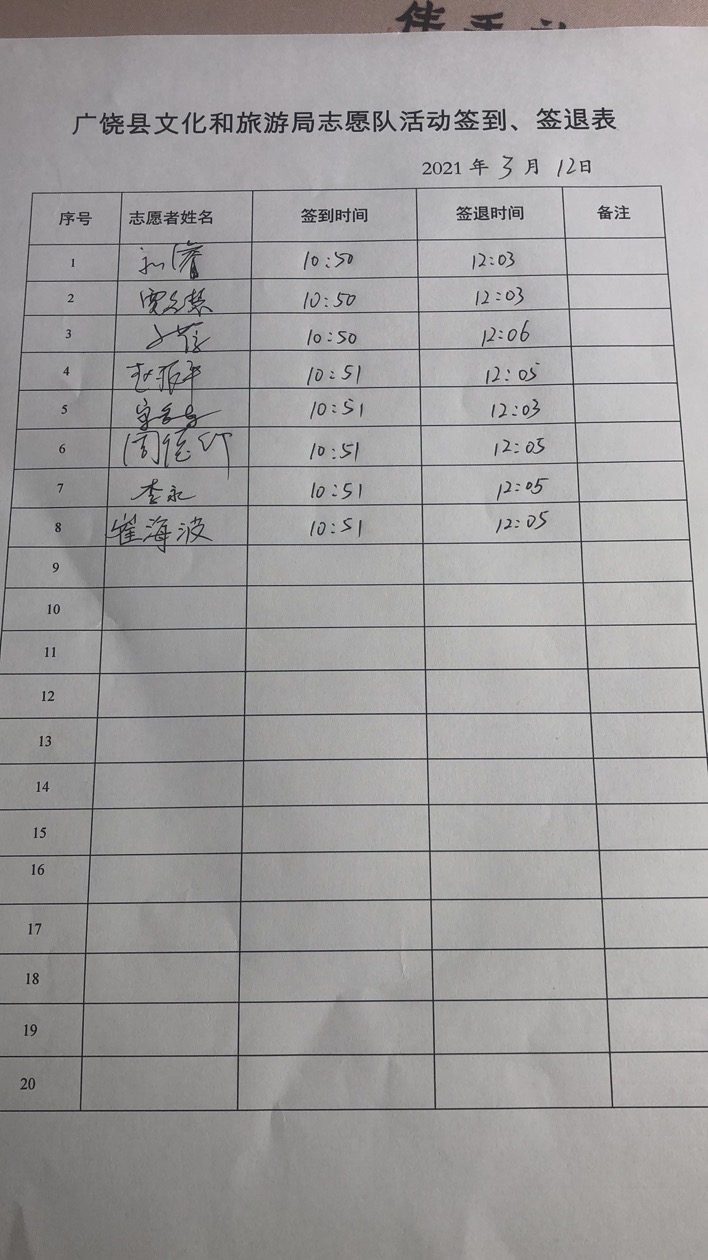 广饶县文化和旅游局志愿队活动签到、签退表
2021 年 3 月 12日
序号 志愿者姓名 签到时间 签退时间 备注
1 10:50 12:03
2 10:50 12:03
3 10:50 12:06
4 赵振平 10:51 12:05
5 10:51 12:03
6 10:51 12:05
7 李永 10:51 12:05
8 崔海波 10:51 12:05
9
10
11
12
13
14
15
16
17
18
19
20